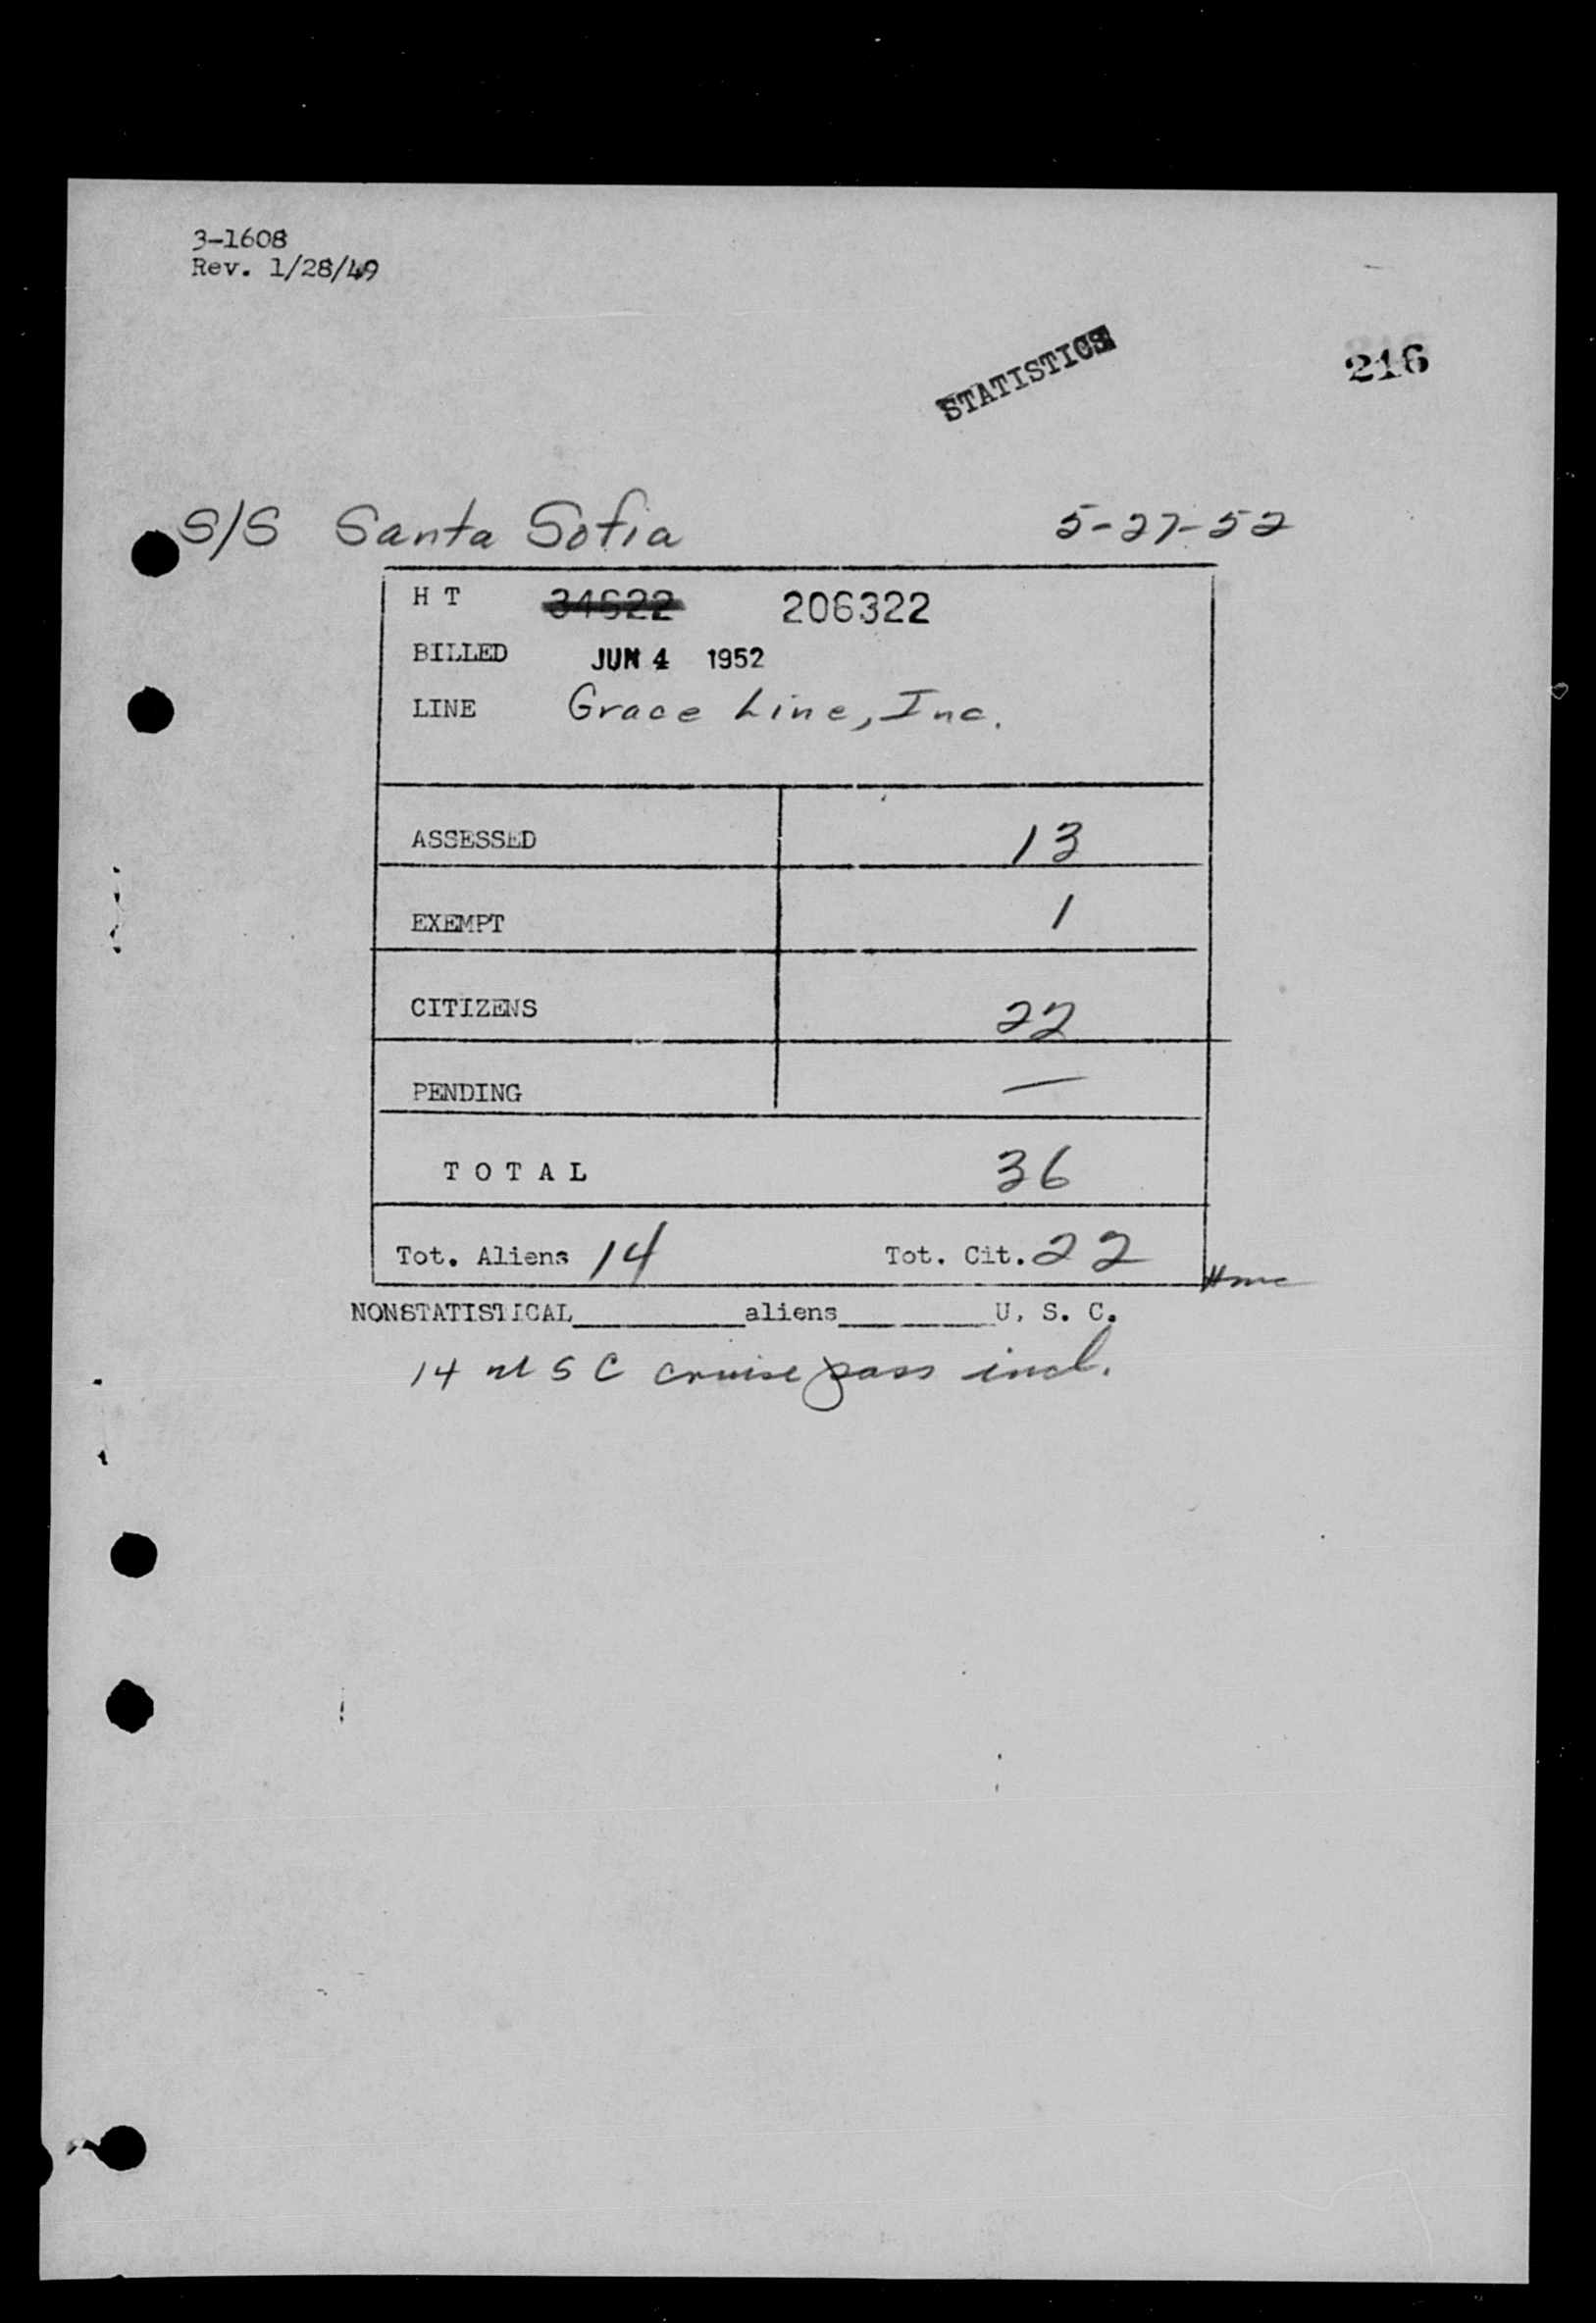 3-1608
Rev. 1/28/49
STATISTICS
216
S/S Santa Sofia 5-27-52
H T 34622 206322
BILLED JUN 4 1952
LINE Grace Line, Inc.
ASSESSED 13
EXEMPT 1
CITIZENS 22
PENDING —
T O T A L 36
Tot. Aliens 14 Tot. Cit. 22
NONSTATISTICAL__________aliens_________U. S. C.
14 U S C cruise pass incl.